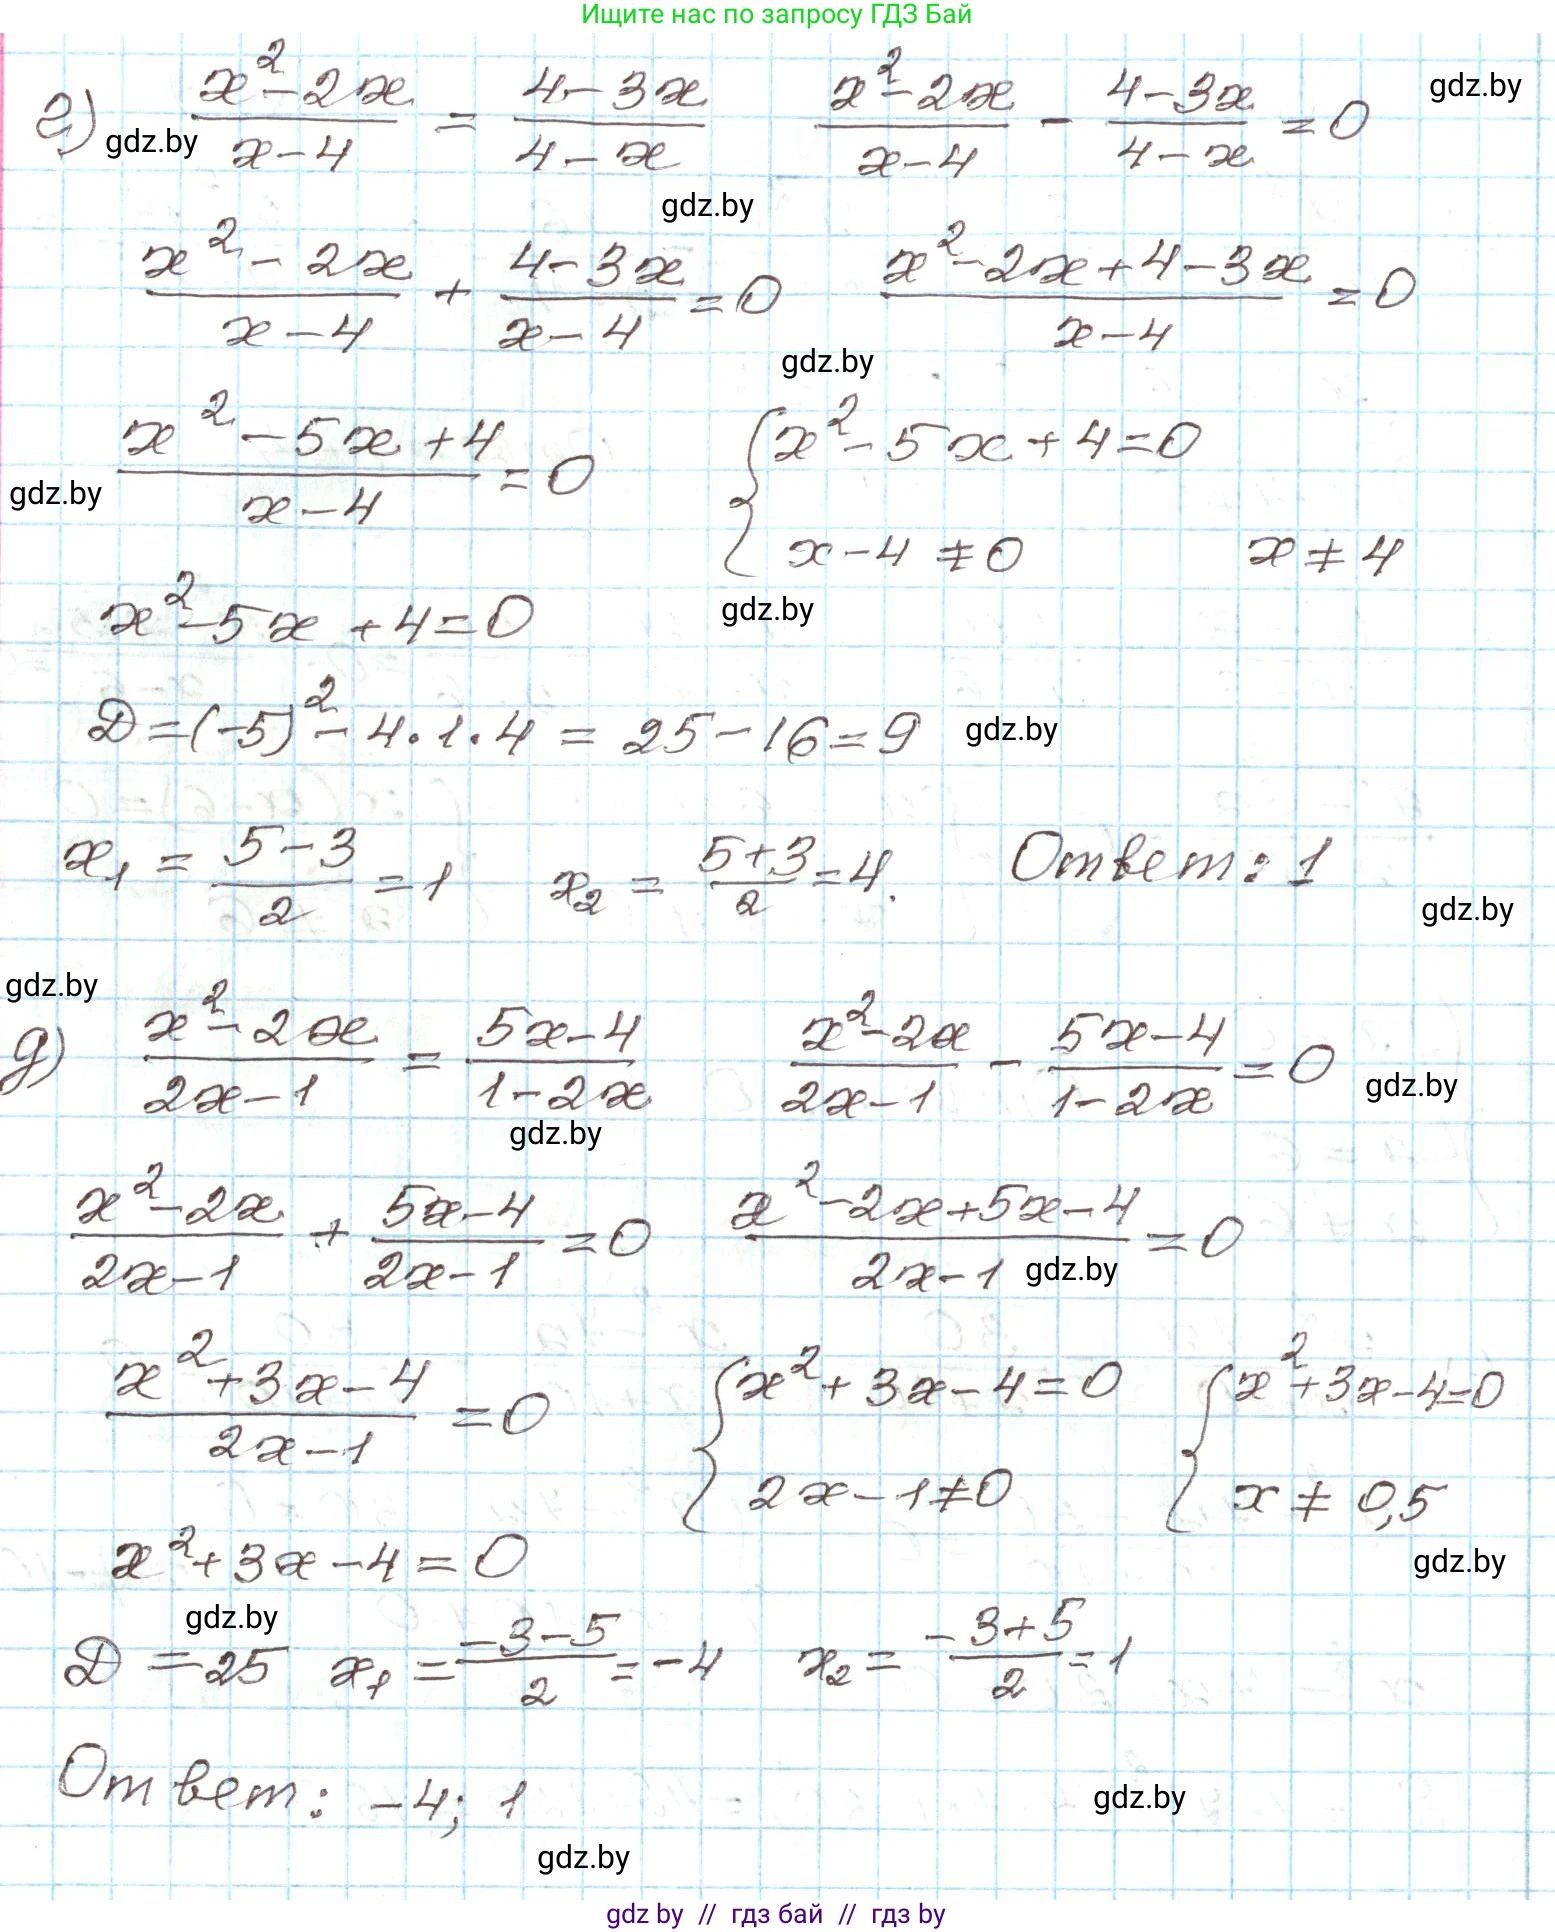 Ищите нас по запросу ГДЗ Бай
г) (x²-2x)/(x-4) = (4-3x)/(4-x)   (x²-2x)/(x-4) - (4-3x)/(4-x) = 0   gdz.by
gdz.by
gdz.by
(x²-2x)/(x-4) + (4-3x)/(x-4) = 0   (x²-2x+4-3x)/(x-4) = 0
gdz.by
(x²-5x+4)/(x-4) = 0   { x²-5x+4=0
gdz.by
x-4≠0   x≠4
x²-5x+4=0   gdz.by
D=(-5)²-4·1·4=25-16=9   gdz.by
x₁=(5-3)/2=1   x₂=(5+3)/2=4.   Ответ: 1
gdz.by
gdz.by
д) (x²-2x)/(2x-1) = (5x-4)/(1-2x)   (x²-2x)/(2x-1) - (5x-4)/(1-2x) = 0   gdz.by
gdz.by
(x²-2x)/(2x-1) + (5x-4)/(2x-1) = 0   (x²-2x+5x-4)/(2x-1) = 0
gdz.by
(x²+3x-4)/(2x-1) = 0   { x²+3x-4=0   { x²+3x-4=0
2x-1≠0   x≠0,5
x²+3x-4=0   gdz.by
gdz.by
D=25   x₁=(-3-5)/2=-4   x₂=(-3+5)/2=1
Ответ: -4; 1   gdz.by
gdz.by
gdz by // гдз бай // гдз by